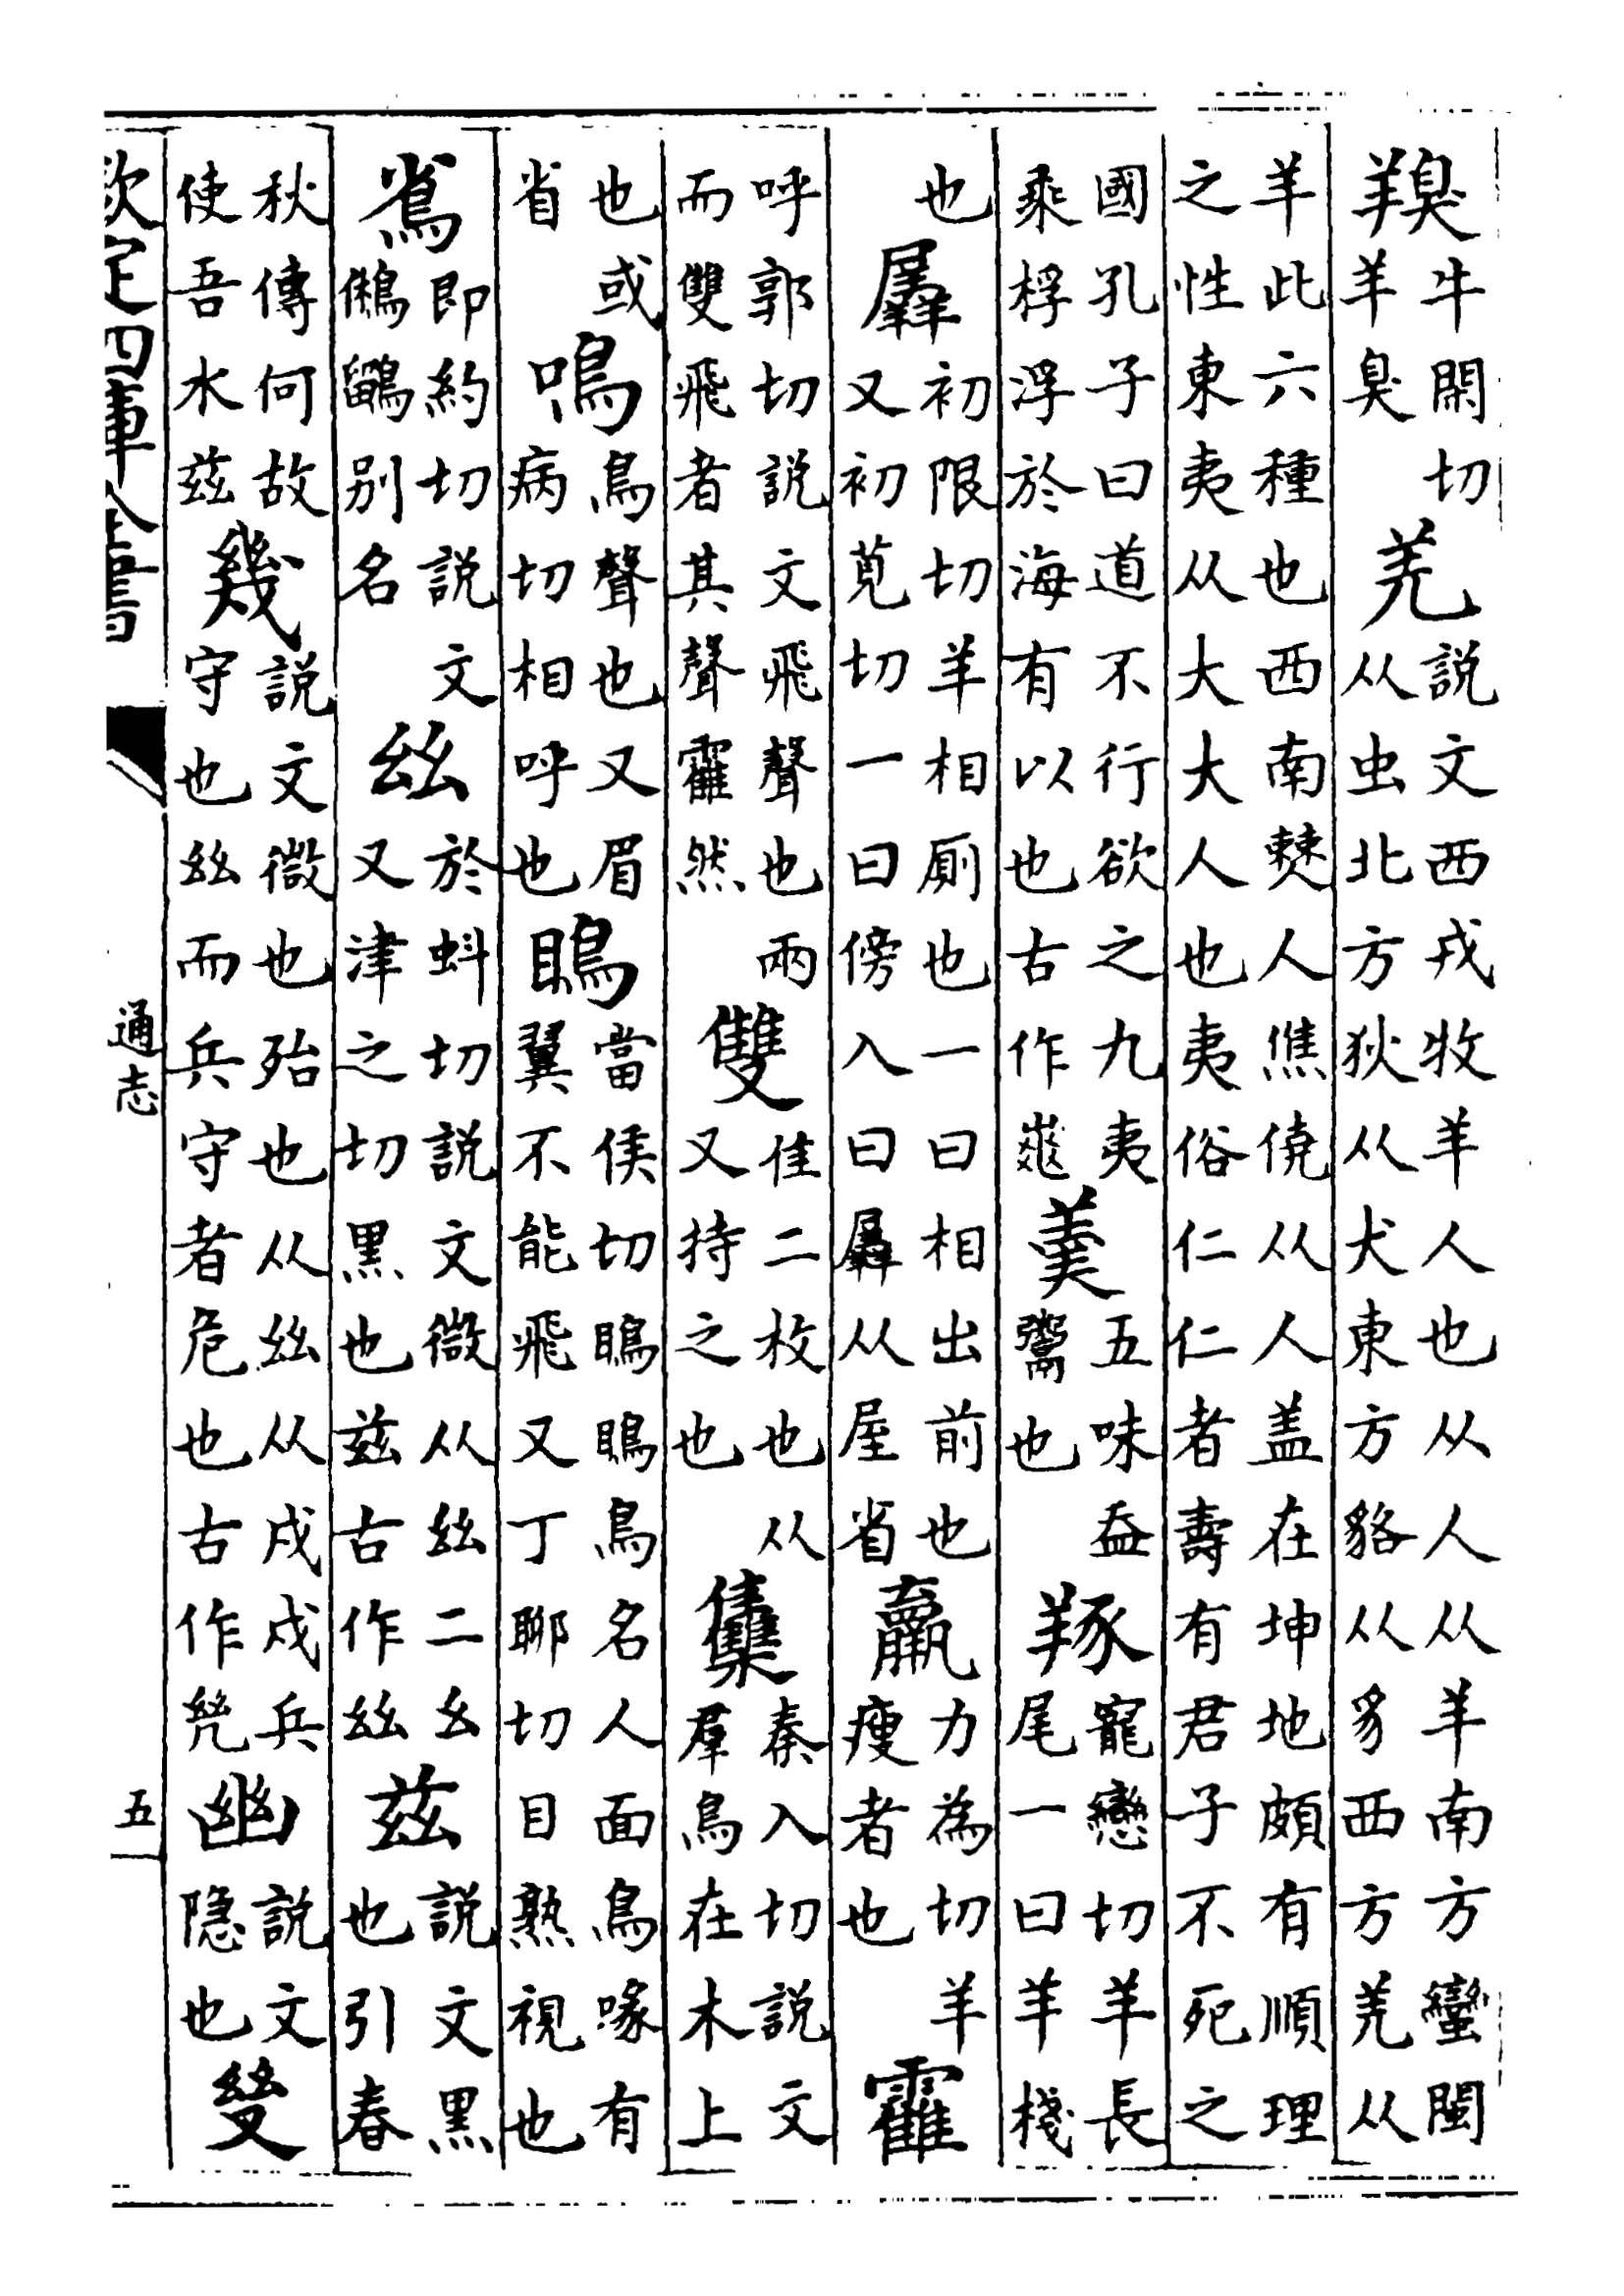 牛閑切羊臭羌說文西戎牧羊人也从人从羊南方蠻閩从虫北方狄从犬東方貉从豸西方羌从
羊此六種也西南僰人僬僥从人盖在坤地頗有順理之性東夷从大大人也夷俗仁仁者壽有君子不死之
國孔子曰道不行欲之九夷乘桴浮於海有以也古作羹五味盉鬻也寵戀切羊長尾一曰羊棧
也羼初限切羊相廁也一曰相出前也又初莧切一曰傍入曰羼从屋省羸力為切羊瘦者也靃
呼郭切說文飛聲也兩而雙飛者其聲靃然雙隹二枚也从又持之也雧秦入切說文羣鳥在木上
也或省鳴鳥聲也又眉病切相呼也瞗當侯切瞗瞗鳥名人面鳥喙有翼不能飛又丁聊切目熟視也
即約切說文鵂鶹別名𢆶於蚪切說文微从𢆶二幺又津之切黑也兹古作𢆶兹說文黑也引春
秋傳何故使吾水兹幾說文微也殆也从𢆶从戍戍兵守也𢆶而兵守者危也古作幽說文隠也
欽定四庫全書
通志
五